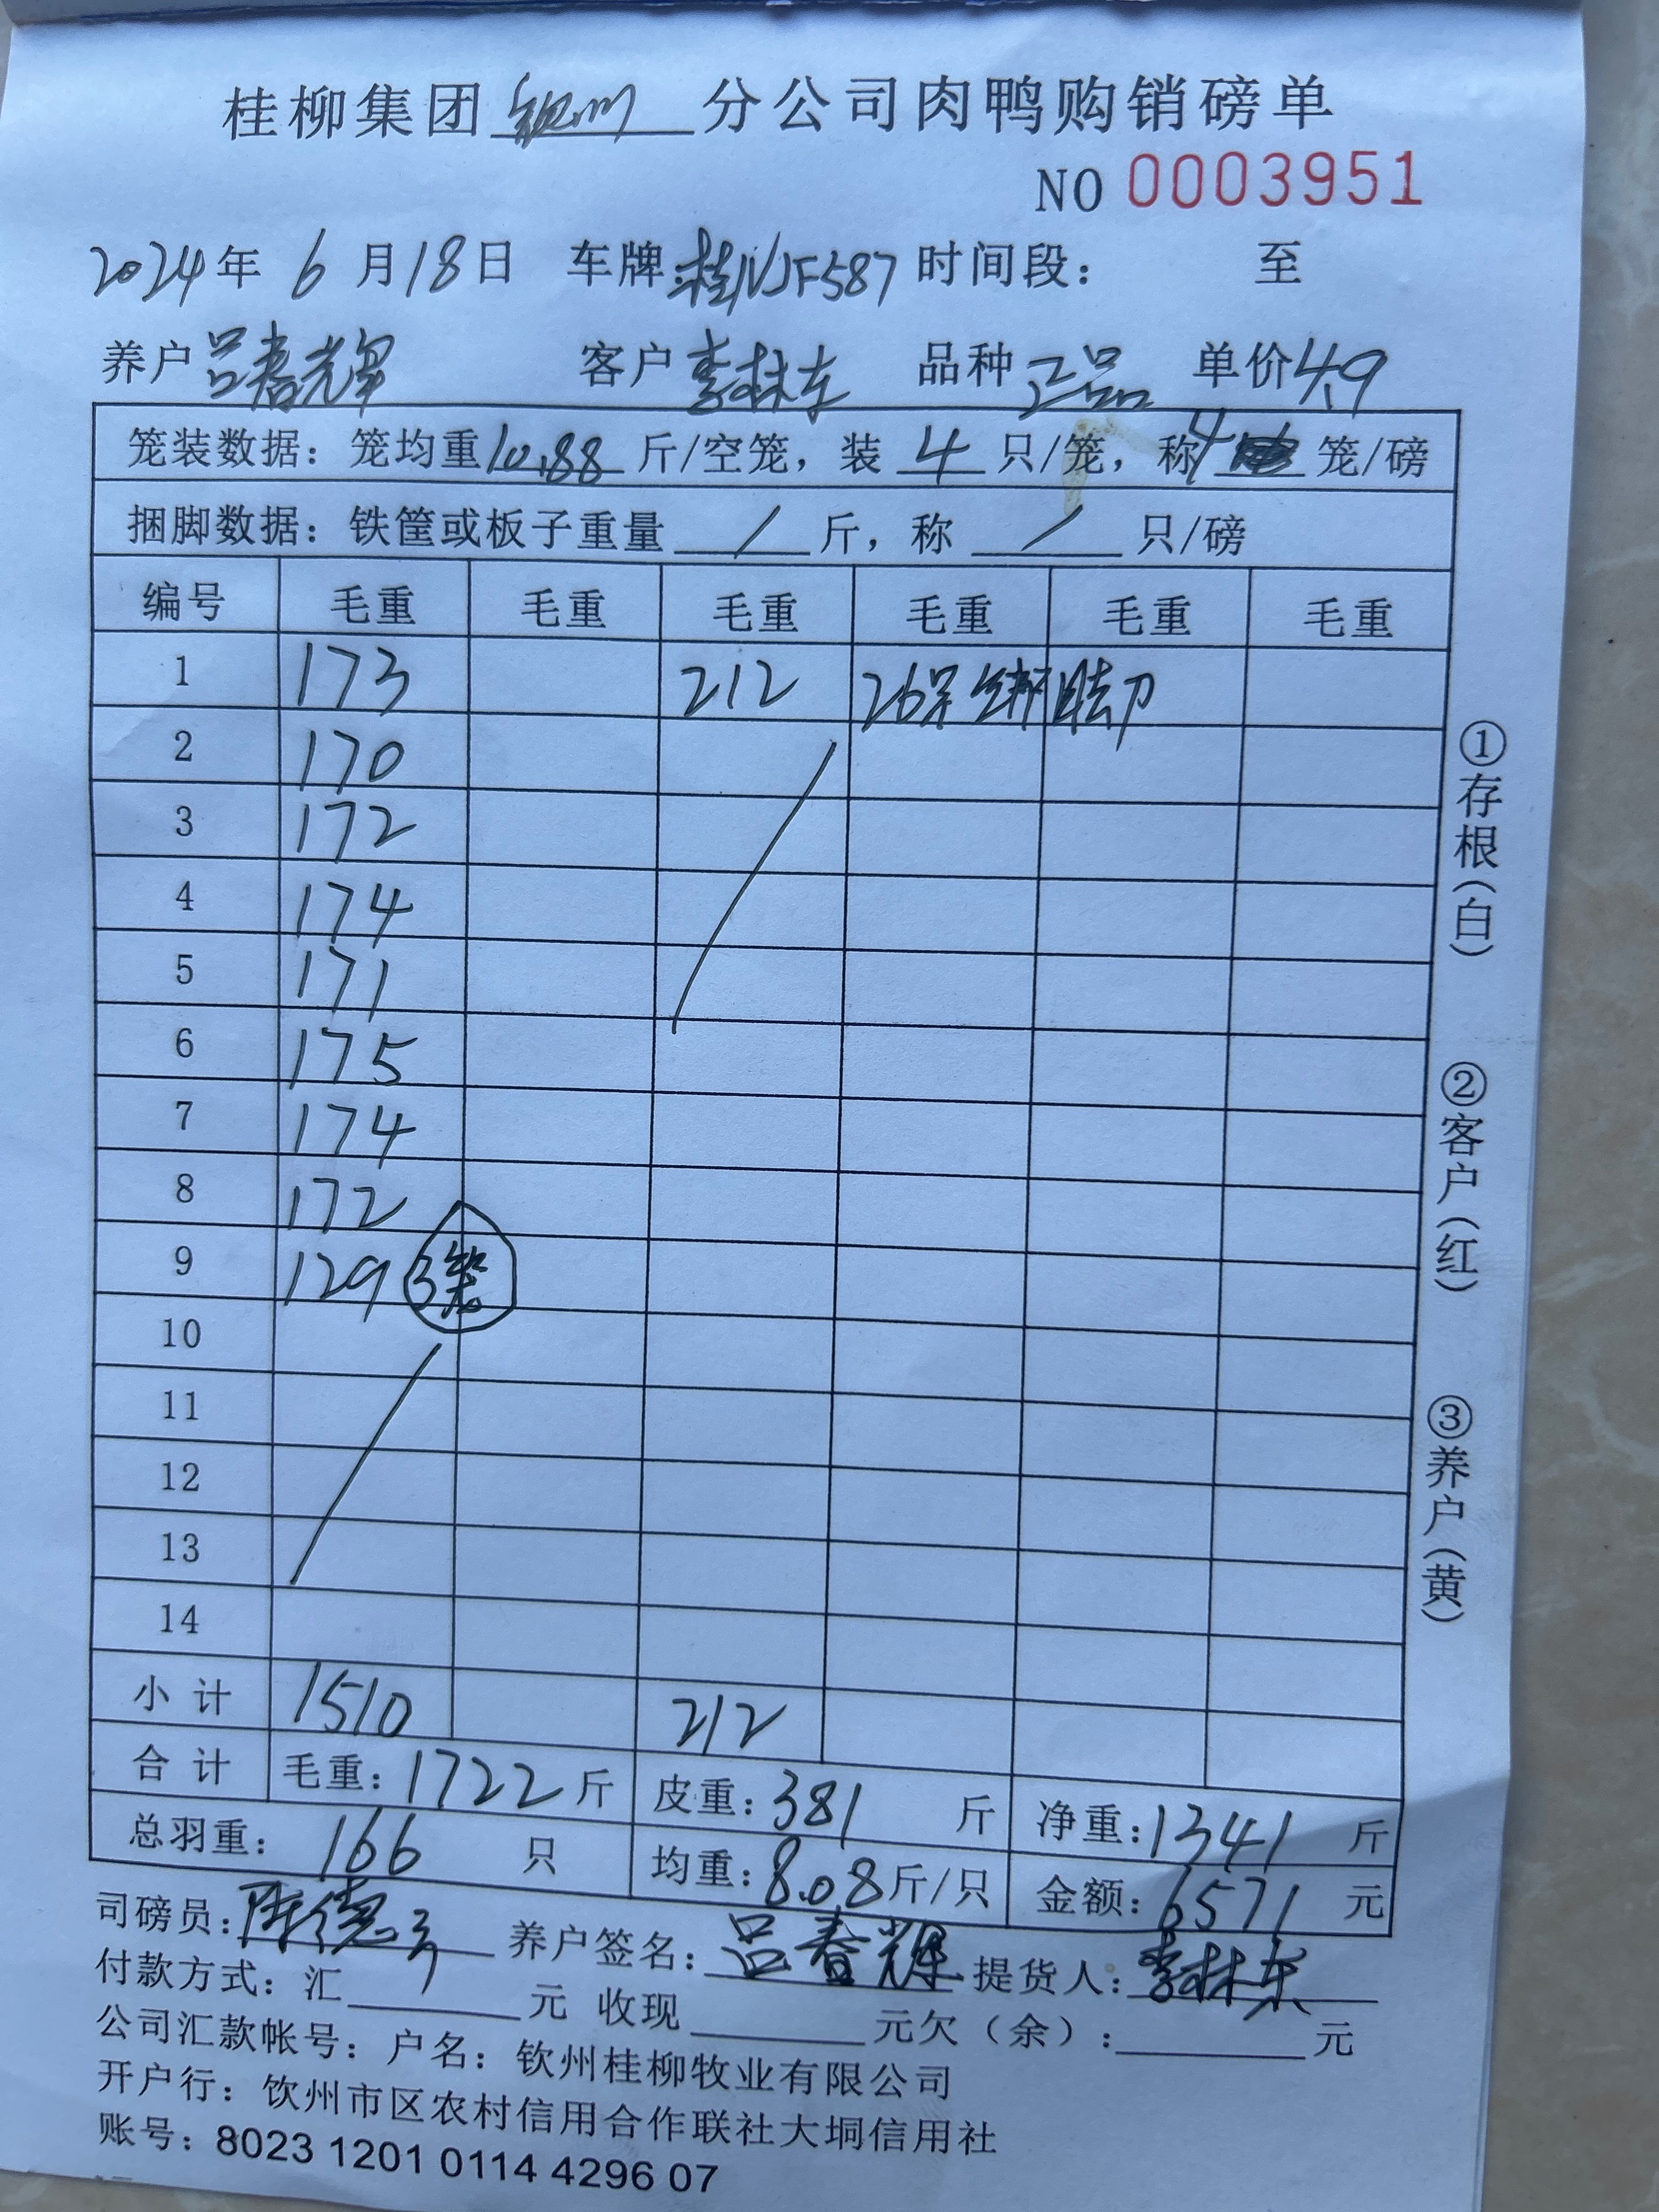 桂柳集团 钦州 分公司肉鸭购销磅单
NO 0003951
2024年 6 月 18日 车牌:桂NJF587 时间段： 至
养户 吕春辉 客户 李林东 品种 正品 单价 4.9
笼装数据：笼均重 10.88 斤/空笼，装 4 只/笼，称 4 笼/磅
捆脚数据：铁筐或板子重量 / 斤，称 / 只/磅
编号 毛重 毛重 毛重 毛重 毛重 毛重
1 173 212 26只
2 170
3 172
4 174
5 171
6 175
7 174
8 172
9 129 3笼
10
11
12
13
14
小 计 1510 212
合 计 毛重：1722斤 皮重：381 斤 净重：1341 斤
总羽重： 166 只 均重：8.08斤/只 金额：6571 元
司磅员： 养户签名：吕春辉 提货人：李林东
付款方式：汇 元 收现 元欠（余）： 元
公司汇款帐号：户名：钦州桂柳牧业有限公司
开户行：钦州市区农村信用合作联社大垌信用社
账号：8023 1201 0114 4296 07
①存根（白） ②客户（红） ③养户（黄）